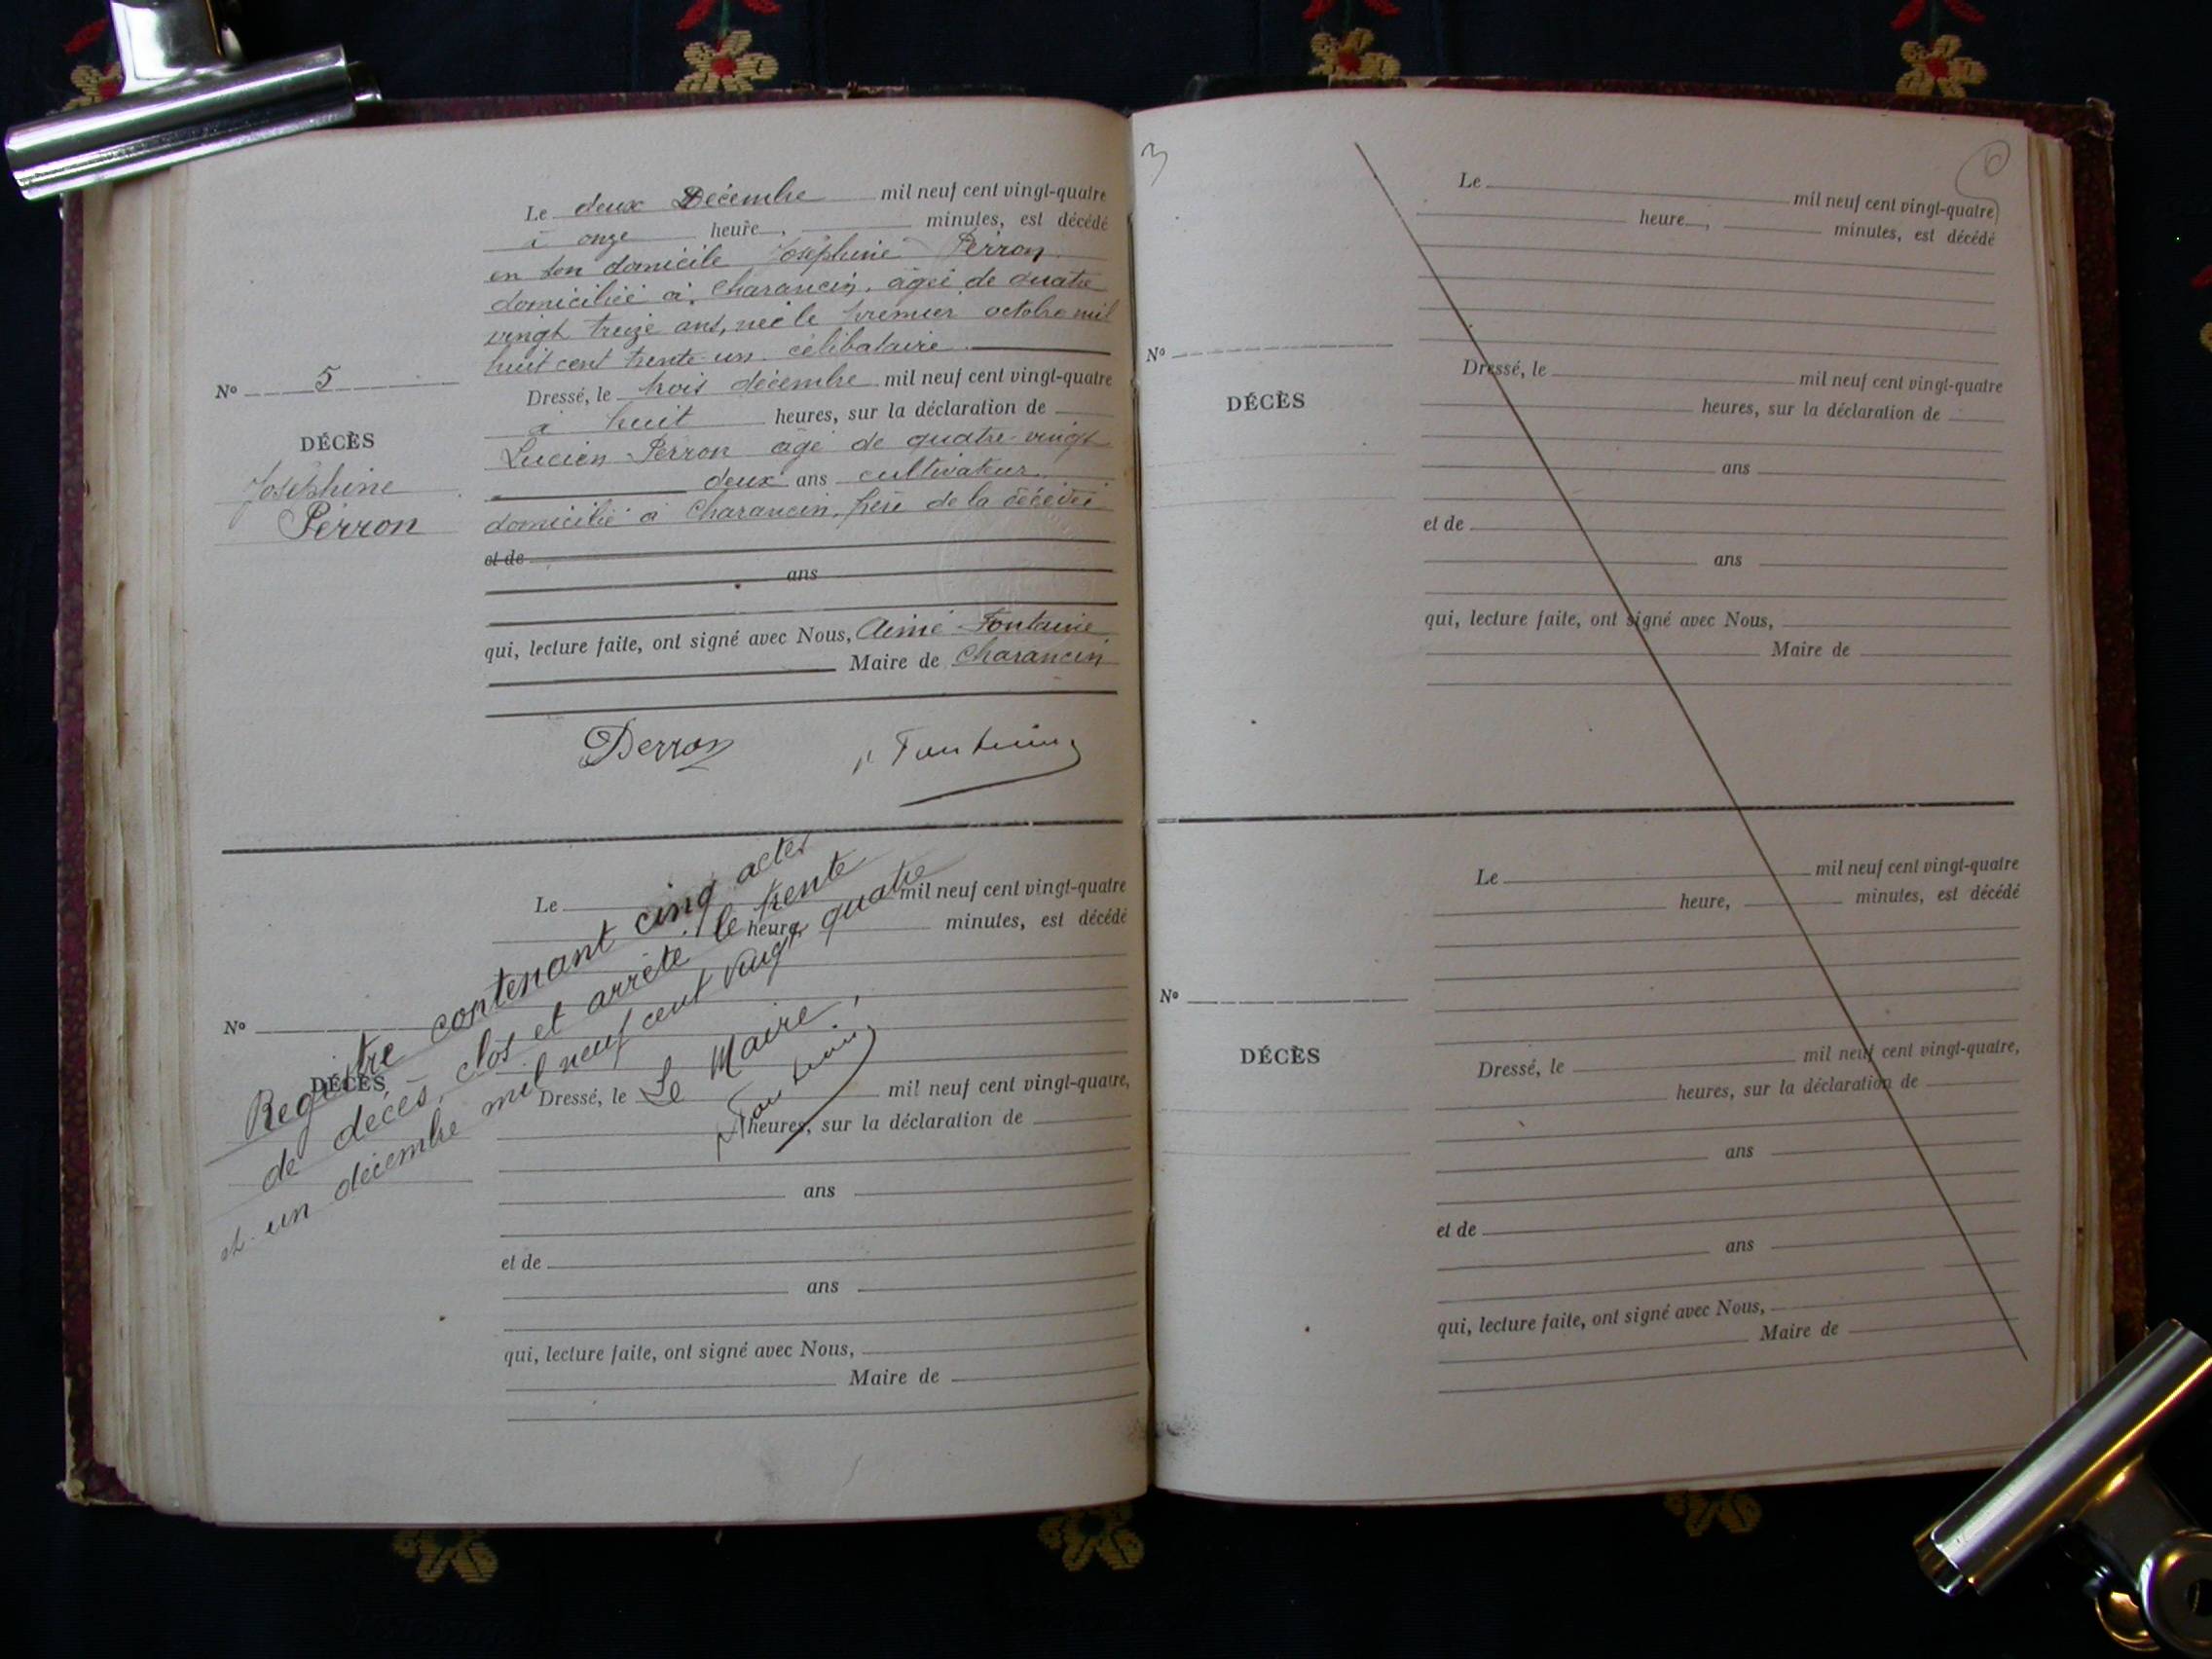 Le deux Décembre mil neuf cent vingt-quatre
à onze heure, minutes, est décédé
en son domicile Joséphine Perron
domiciliée à Charancin, âgée de quatre
vingt treize ans, née le premier octobre mil
huit cent trente-un célibataire
Nº 5
DÉCÈS
Joséphine
Perron
Dressé, le trois décembre mil neuf cent vingt-quatre
à huit heures, sur la déclaration de
Lucien Perron âgé de quatre-vingt
deux ans cultivateur
domicilié à Charancin, frère de la décédée
et de
ans
qui, lecture faite, ont signé avec Nous, Aimé Fontaine
Maire de Charancin
Perron A Fontaine
Le mil neuf cent vingt-quatre
heure, minutes, est décédé
Nº
DÉCÈS
Registre contenant cinq actes
de décès, clos et arrêté le trente
et un décembre mil neuf cent vingt quatre
Le Maire,
A Fontaine
Dressé, le mil neuf cent vingt-quatre,
heures, sur la déclaration de
ans
et de
ans
qui, lecture faite, ont signé avec Nous,
Maire de
3
6
Le mil neuf cent vingt-quatre
heure, minutes, est décédé
Nº
DÉCÈS
Dressé, le mil neuf cent vingt-quatre
heures, sur la déclaration de
ans
et de
ans
qui, lecture faite, ont signé avec Nous,
Maire de
Le mil neuf cent vingt-quatre
heure, minutes, est décédé
Nº
DÉCÈS
Dressé, le mil neuf cent vingt-quatre,
heures, sur la déclaration de
ans
et de
ans
qui, lecture faite, ont signé avec Nous,
Maire de